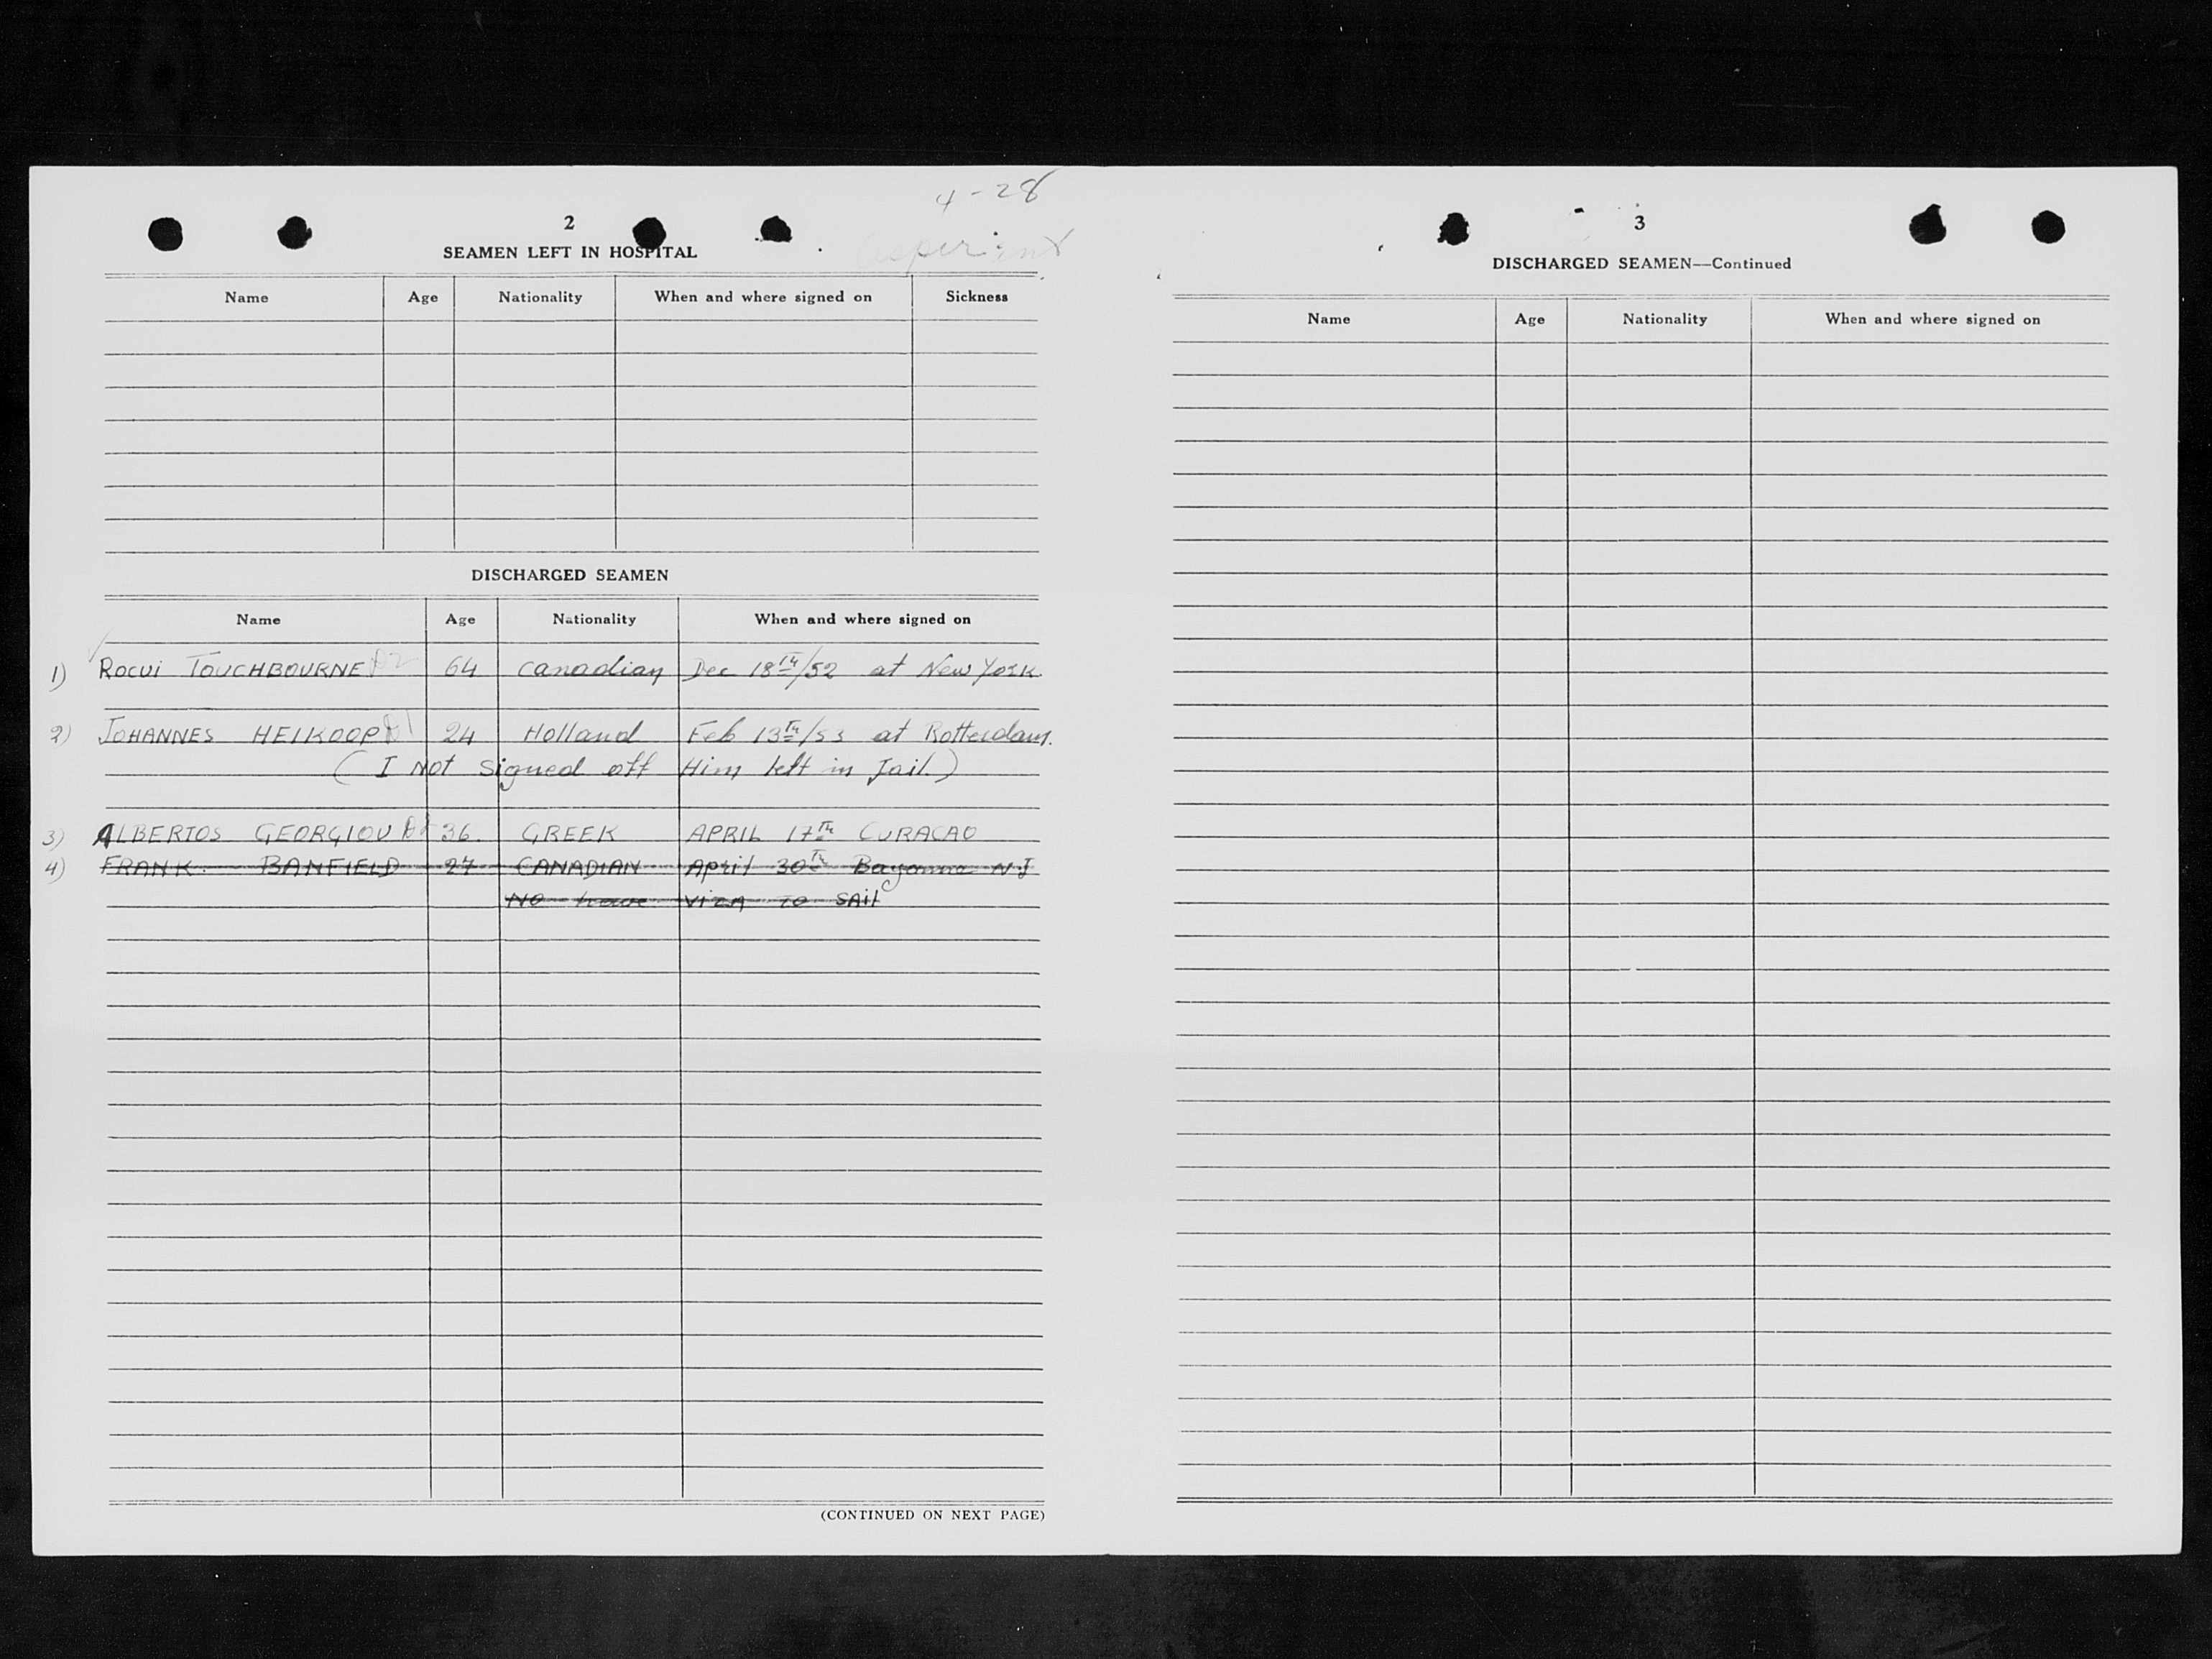 4-28
2
SEAMEN LEFT IN HOSPITAL
Name Age Nationality When and where signed on Sickness
DISCHARGED SEAMEN
Name Age Nationality When and where signed on
1) ROCUI TOUCHBOURNE 64 Canadian Dec 18TH/52 at New York
2) JOHANNES HEIKOOP 24 Holland Feb 13TH/53 at Rotterdam.
( I Not Signed off Him left in Jail.)
3) ALBERTOS GEORGIOU 36. GREEK APRIL 17TH CURACAO
4) FRANK. BANFIELD 27 CANADIAN April 30TH Bayonne N.J
NO have VizA TO SAil
(CONTINUED ON NEXT PAGE)
3
DISCHARGED SEAMEN—Continued
Name Age Nationality When and where signed on